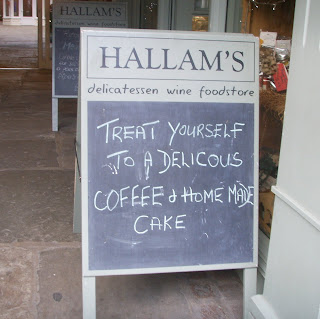 HALLAM'S
delicatessen wine foodstore
TREAT YOURSELF
TO A DELICOUS
COFFEE & HOME MADE
CAKE
HALLAM'S
delicatessen wine foodstore